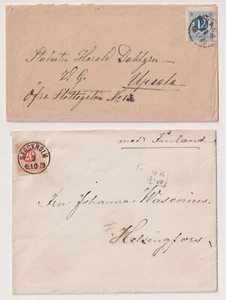 12
Harald Dahlgren
V. G.
Upsala
Öfra Slottsgatan No 12
STOCKHOLM
med Finland
Fru Johanna Wasenius
Helsingfors